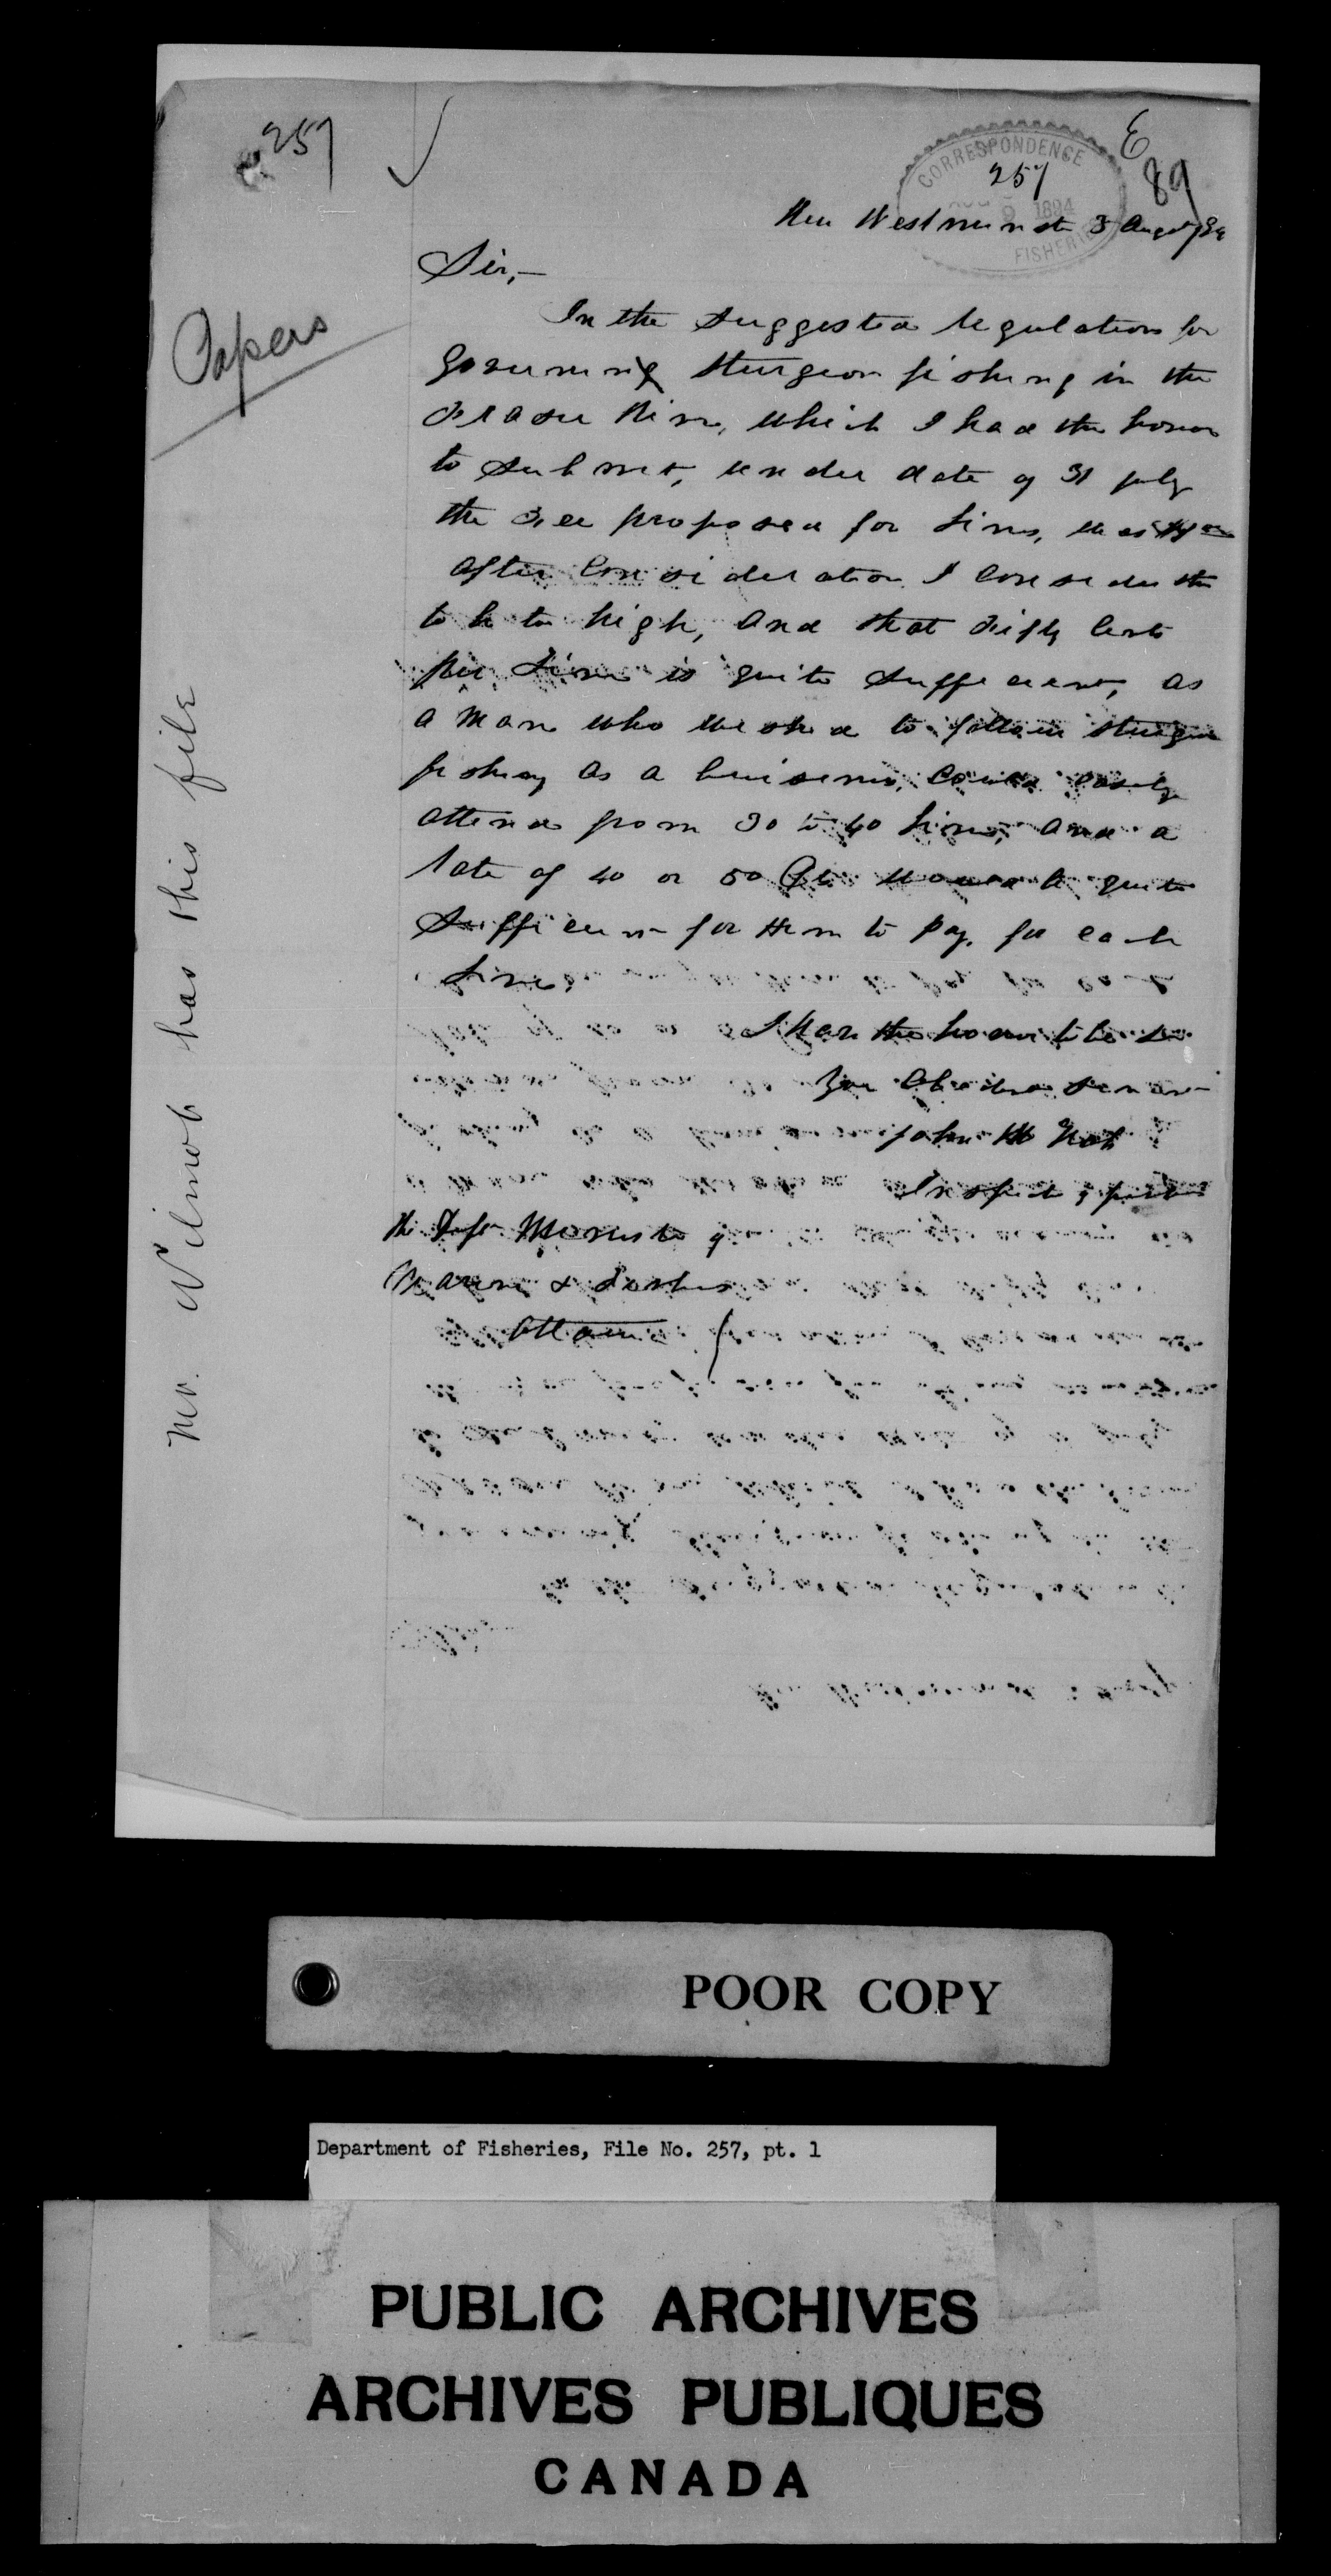 257
E
89
CORRESPONDENCE
257
AUG 9 1894
FISHERIES
New Westminster 3 August/94
Papers
Sir,—
In the suggested regulations for
governing sturgeon fishing in the
Fraser River, which I had the honor
to submit, under date of 31 July
the Fee proposed for lines, was
after consideration I consider this
to be too high, and that Fifty Cents
per Line is quite sufficient, as
a man who wished to follow sturgeon
fishing as a business, could easily
attend from 30 to 40 lines, and a
rate of 40 or 50 cts would be quite
sufficient for them to pay for each
Line.
I have the honor to be Sir
Your Obedient Servant
John
Inspector of Fisheries
The Depty Minister of
Marine & Fisheries
Ottawa
Mr. Wilmot has this file
POOR COPY
Department of Fisheries, File No. 257, pt. 1
PUBLIC ARCHIVES
ARCHIVES PUBLIQUES
CANADA